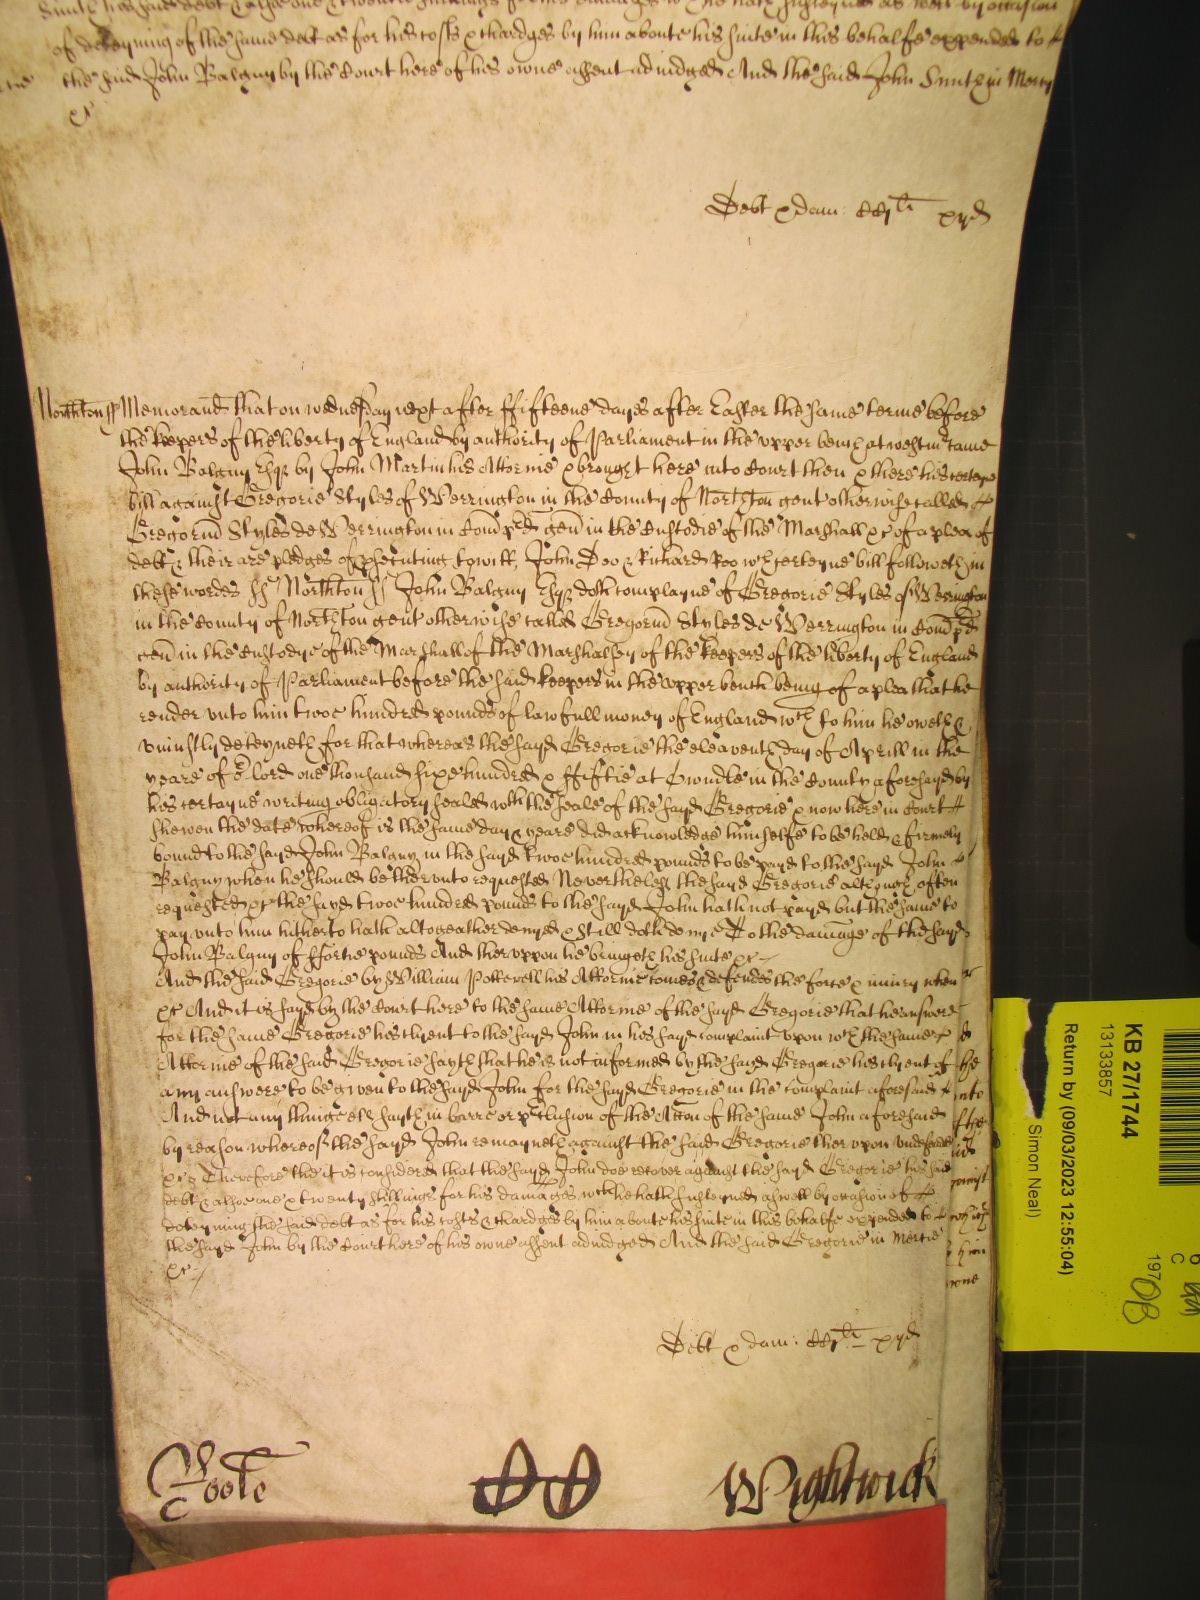 Smith his said debt & alsoe one & twentie shillings for his damages wch he hath susteyned as well by occasion
of deteyning of the same debt as for his costs & chardges by him aboute his suite in this behalfe expended to
the said John Balguy by the Court here of his owne assent adiudged And the said John Smith in Mercy
&c
Debt & dam: CCjli xijd
Northton ss Memorand that on wednesday next after ffifteene dayes after Easter the same terme before
the keepers of the liberty of England by authority of Parliament in the upper bench at westmr came
John Balguy Esqr by John Martin his Attornie & brought here into Court then & there his certeyne
bill against Gregorie Styles of Werrington in the County of Northton gent otherwise called
Gregoriu Styles de Werrington in Com pd gen in the Custodie of the Marshall &c of a plea of
debt & their are pledges of psecuting towitt, John Doo & Richard Roo wch certeyne bill followeth in
these wordes ss Northton ss John Balguy Esqr doth complayne of Gregorie Styles of Werrington
in the County of Northton gent otherwise called Gregoriu Styles de Werrington in Com pd
gen in the Custodye of the Marshall of the Marshalsey of the keepers of the liberty of England
by authority of Parliament before the said keepers in the upper bench being of a plea that he
render unto him twoe hundred pounds of lawfull money of England wch to him he oweth &
uniustly deteyneth for that whereas the sayd Gregorie the eleaventh day of Aprill in the
yeare of or lord one thousand sixe hundred & ffiftie at Owndle in the County aforesayd by
his certayne writing obligatory sealed with the seale of the sayd Gregorie & now here in Court
shewen the date whereof is the same day & yeare did acknowledge himselfe to be held & firmely
bound to the sayd John Balguy in the sayd twoe hundred pounds to be payd to the sayd John
Balguy when he should be therunto requested Neverthelesse the sayd Gregorie although often
requested &c the sayd twoe hundred pounds to the sayd John hath not payd but the same to
pay unto him hitherto hath altogeather denyed & still doth denye To the damage of the sayd
John Balguy of ffortie pounds And theruppon he bringeth his suite &c
And the said Gregorie by William Pottrell his Attornie comes & defendes the force & iniury when
&c And it is sayd by the Court here to the same Attornie of the sayd Gregorie that he answere
for the same Gregorie his clyent to the sayd John in his sayd complaint upon wch the same
Attornie of the said Gregorie sayth that he is not informed by the sayd Gregorie his clyent of
any answere to be given to the sayd John for the sayd Gregorie in the complaint aforesaid
And not any thinge els sayth in barre or pclusion of the Accon of the same John aforesaid
by reason whereof the sayd John remayneth against the said Gregorie therupon undefended
&c Therefore the it is considered that the sayd John doe recover against the sayd Gregorie his said
debt & alsoe one & twenty shillings for his damages wch he hath susteyned aswell by occasion of
deteyning the said debt as for his costs & chardges by him aboute his suite in this behalfe expended to
the sayd John by the Court here of his owne assent adiudged And the said Gregorie in Mercie
&c
Debt & dam: CCjli xijd
Wightwick
KB 27/1744
13133857
Return by (09/03/2023 12:55:04)
Simon Neal)